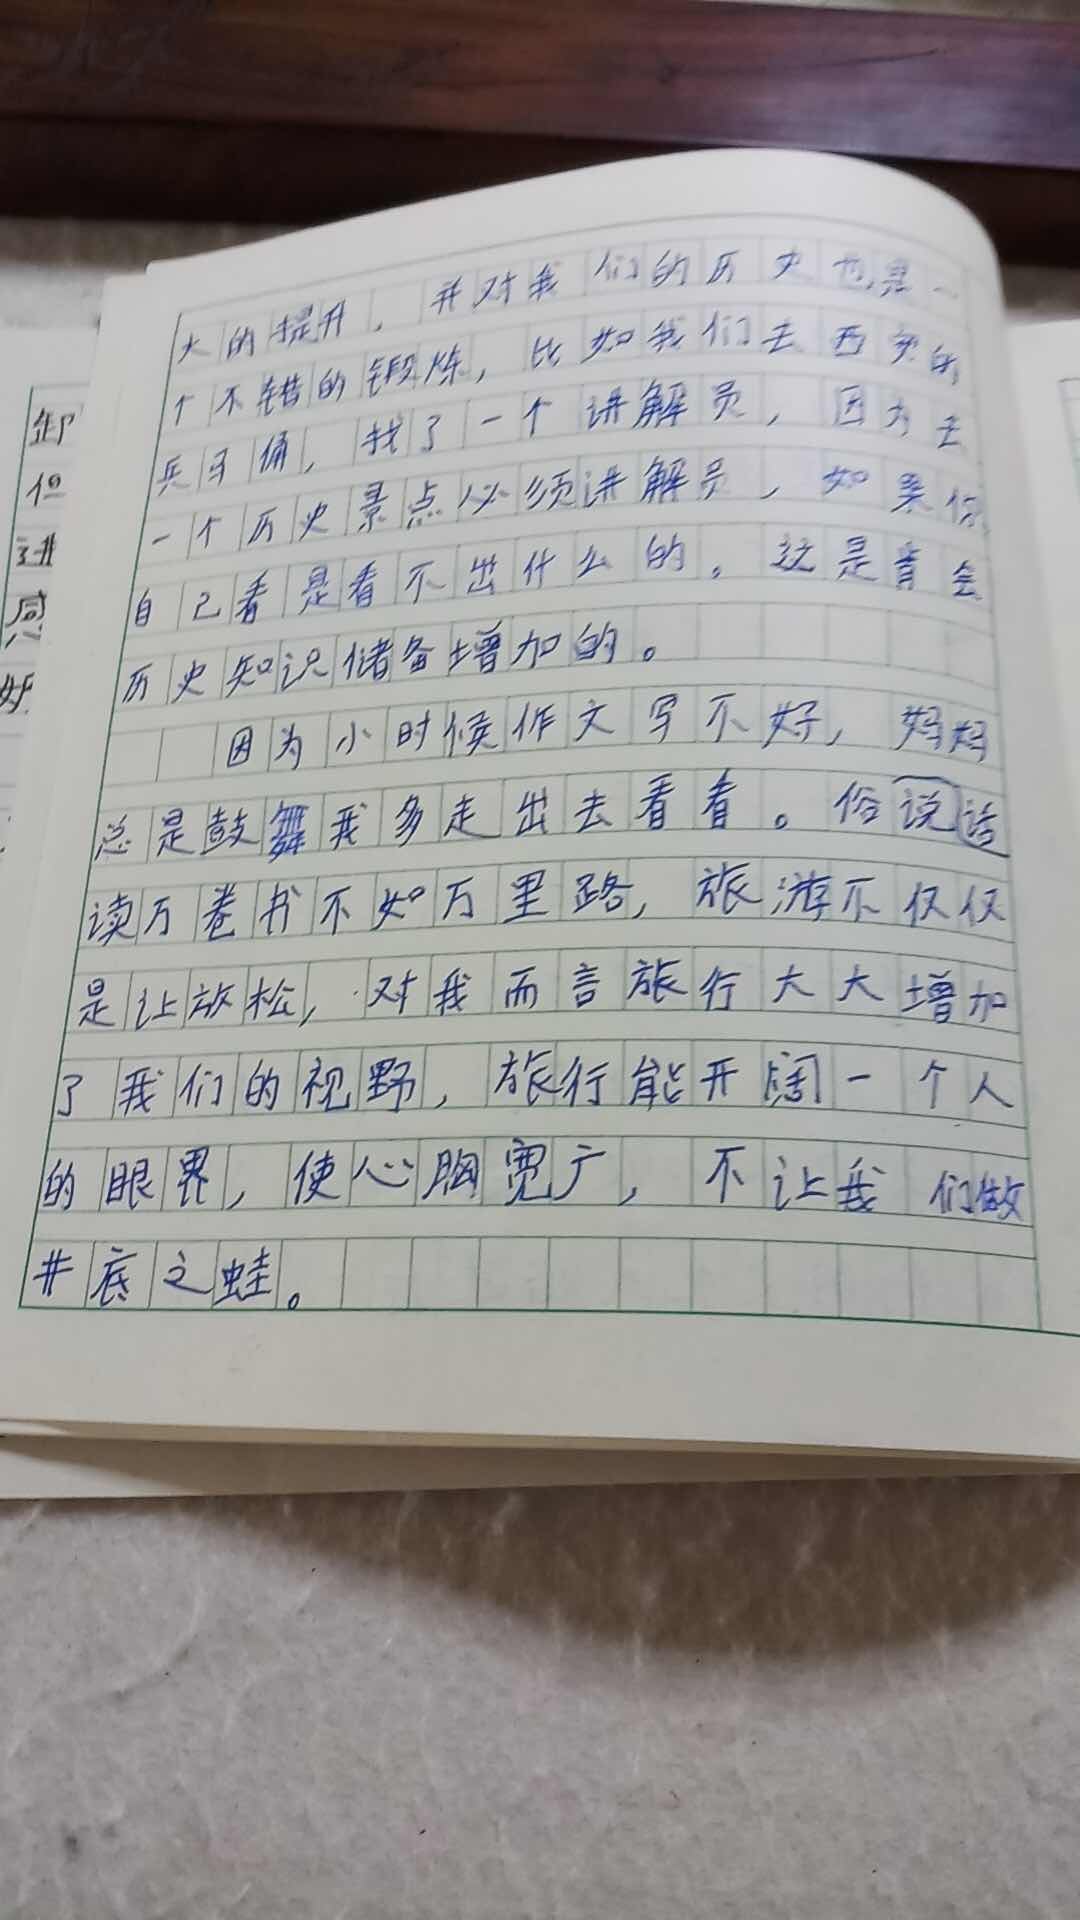 大的提升，并对我们的历史也是一
个不错的锻炼，比如我们去西安的
兵马俑，找了一个讲解员，因为去
一个历史景点必须讲解员，如果你
自己看是看不出什么的。这是会
历史知识储备增加的。
因为小时候作文写不好，妈妈
总是鼓舞我多走出去看看。俗说话
读万卷书不如万里路，旅游不仅仅
是让放松，对我而言旅行大大增加
了我们的视野，旅行能开阔一个人
的眼界，使心胸宽广，不让我们做
井底之蛙。
卸
但
进
感
好